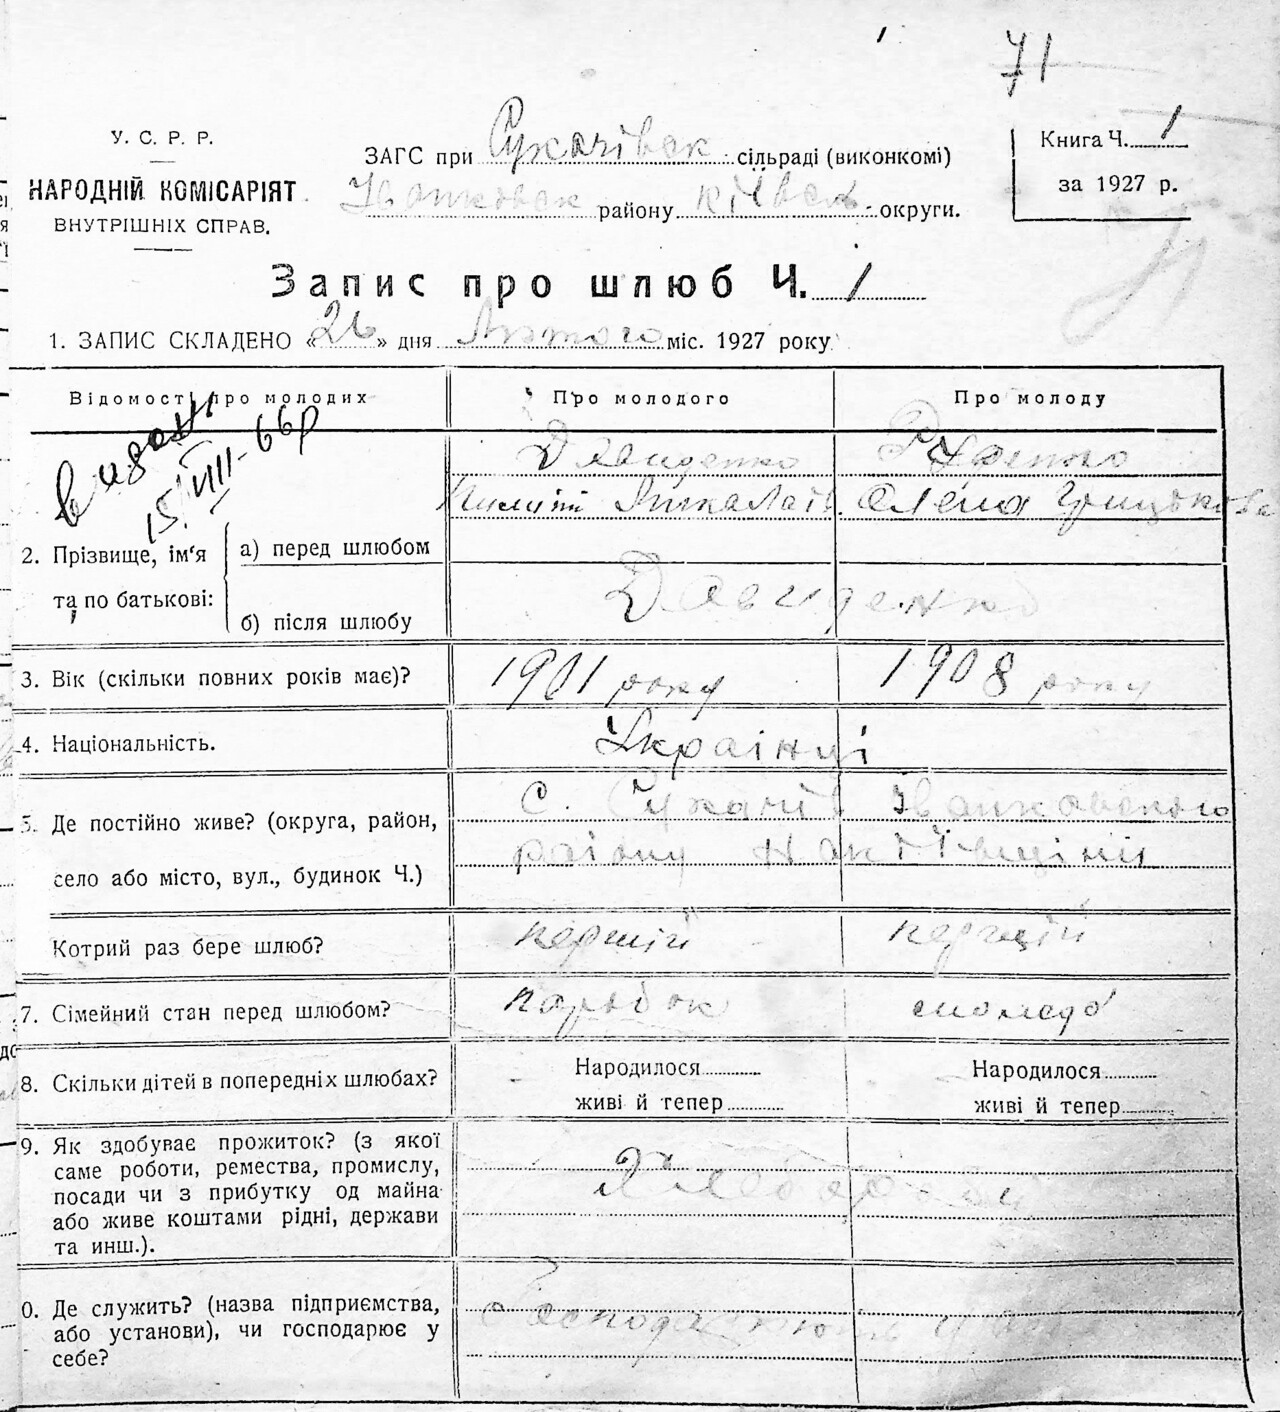 71
У. С. Р. Р.
НАРОДНІЙ КОМІСАРІЯТ
ВНУТРІШНІХ СПРАВ.
ЗАГС при Сукачівск сільраді (виконкомі)
Іванковск району Київськ округи.
Книга Ч. 1
за 1927 р.
Запис про шлюб Ч. 1
1. ЗАПИС СКЛАДЕНО «26» дня Лютого міс. 1927 року
Відомості про молодих
Про молодого
Про молоду
видан
15/VIII-66р
Давиденко
Руденко
Миколаїв.
Олена Грицькова
2. Прізвище, ім'я та по батькові:
а) перед шлюбом
б) після шлюбу
Давиденко
3. Вік (скільки повних років має)?
1901 року
1908 року
4. Національність.
Українці
5. Де постійно живе? (округа, район,
село або місто, вул., будинок Ч.)
С. Сукачів Іванковского
району на Київщині
Котрий раз бере шлюб?
перший
перший
7. Сімейний стан перед шлюбом?
парубок
8. Скільки дітей в попередніх шлюбах?
Народилося
живі й тепер
Народилося
живі й тепер
9. Як здобуває прожиток? (з якої
саме роботи, ремества, промислу,
посади чи з прибутку од майна
або живе коштами рідні, держави
та инш.).
Хлібороби
0. Де служить? (назва підприємства,
або установи), чи господарює у
себе?